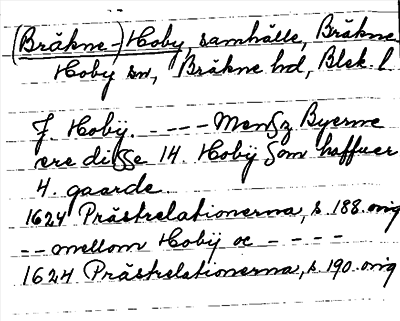 (Bräkne-) Hoby, samhälle, Bräkne
Hoby sn, Bräkne hd, Blek. l.
J. Hobÿ. - - - - Menſz Byerne
ere diſſe 14. Hobÿ ſom haffuer
4. gaarde.
1624 Prästrelationerna, s. 188. orig
- - mellom Hobÿ oc - - - -
1624 Prästrelationerna, s. 190. orig